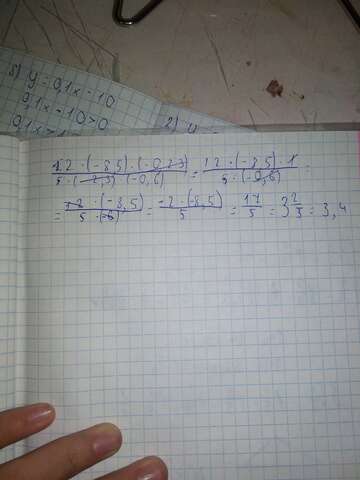 5) y = 0,1x - 10
0,1x - 10 > 0
2) y
1,2 · (-8,5) · (-0,23) / 5 · (-2,3) · (-0,6) = 1,2 · (-8,5) · 1 / 5 · (-0,6) =
= 12 · (-8,5) / 5 · (-6) = -2 · (-8,5) / 5 = 17/5 = 3 2/5 = 3,4